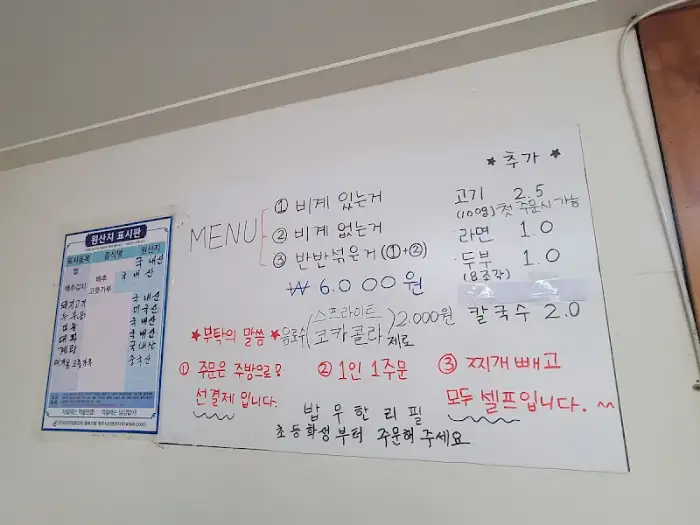 원산지 표시판
음식명
원산지
쌀
국내산
배추김치
배추
국내산
고춧가루
돼지고기
국내산
두부(콩)
미국산
국내산
대파
국내산
계란
국내산
중국산
MENU
① 비계 있는거
② 비계 없는거
③ 반반섞은거 (①+②)
₩ 6.000원
음료수 (스프라이트 코카콜라 제로) 2.000원
★ 추가 ★
고기 2.5
(100g) 첫 주문시 가능
라면 1.0
· 두부 1.0
(8조각)
칼국수 2.0
★부탁의 말씀★
① 주문은 주방으로!
선결제 입니다.
② 1인 1주문
③ 찌개 빼고
모두 셀프입니다.
밥 무한리필
초등학생부터 주문해주세요